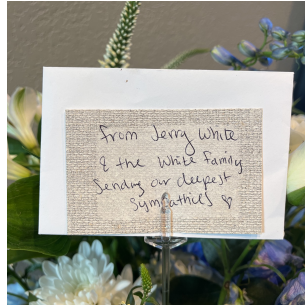 from Jerry White
& the White family
Sending our deepest
sympathies ♡